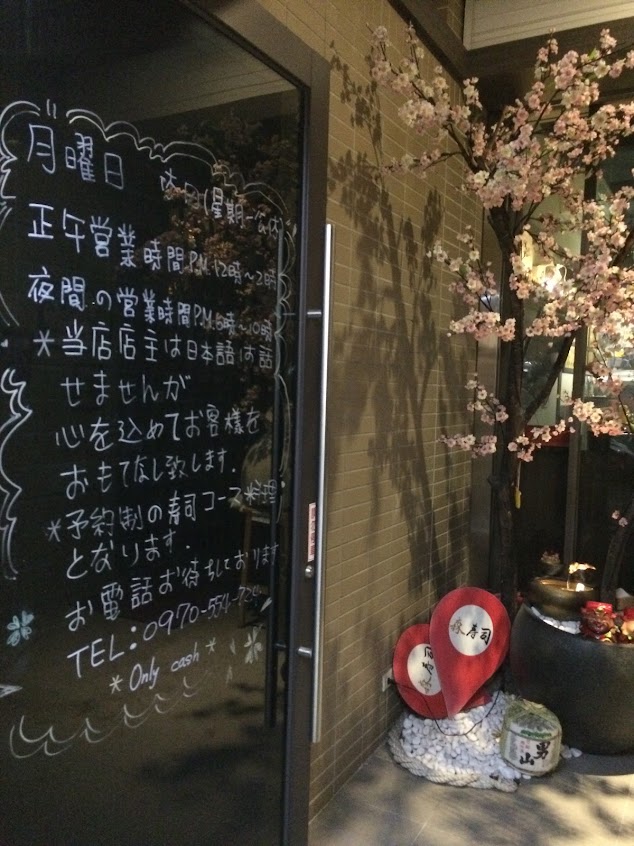 月曜日 休日(星期一公休)
正午営業時間PM.12時～2時
夜間の営業時間PM.6時～10時
*当店店主は日本語は話
せませんが
心を込めてお客様を
おもてなし致します.
*予約制の寿司コース料理
となります.
お電話お待ちしております
TEL:0970-554-724
*Only cash*
寿司
男山